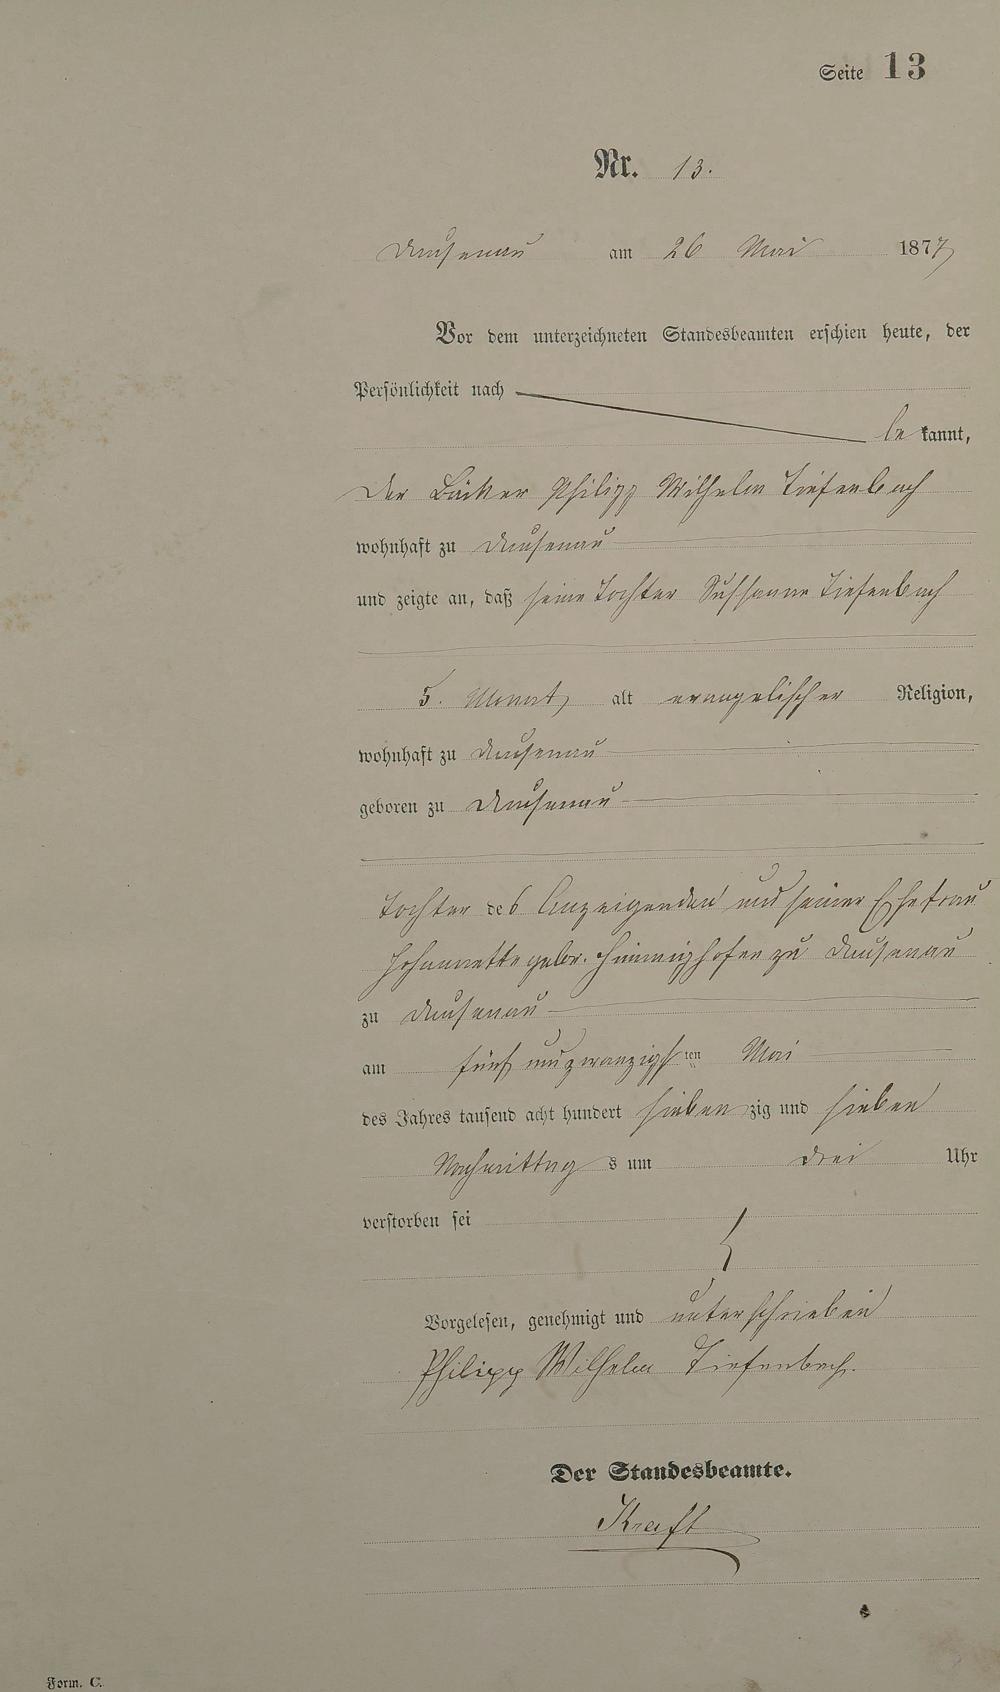 Seite 13
Nr. 13.
Dausenau am 26 Mai 1877
Vor dem unterzeichneten Standesbeamten erschien heute, der
Persönlichkeit nach
be kannt,
Der Bäcker Philipp Wilhelm Tiefenbach
wohnhaft zu Dausenau
und zeigte an, daß seine Tochter Sussanne Tiefenbach
5. Monat alt evangelischer Religion,
wohnhaft zu Dausenau
geboren zu Dausenau
Tochter des Anzeigenden und seiner Ehefrau
Johannette gebr. Himmighofen zu Dausenau
zu Dausenau
am fünf und zwanzigsten Mai
des Jahres tausend acht hundert sieben zig und sieben
Nachmittag s um drei Uhr
verstorben sei
Vorgelesen, genehmigt und unterschrieben
Philipp Wilhelm Tiefenbach.
Der Standesbeamte.
Kraft
Form. C.